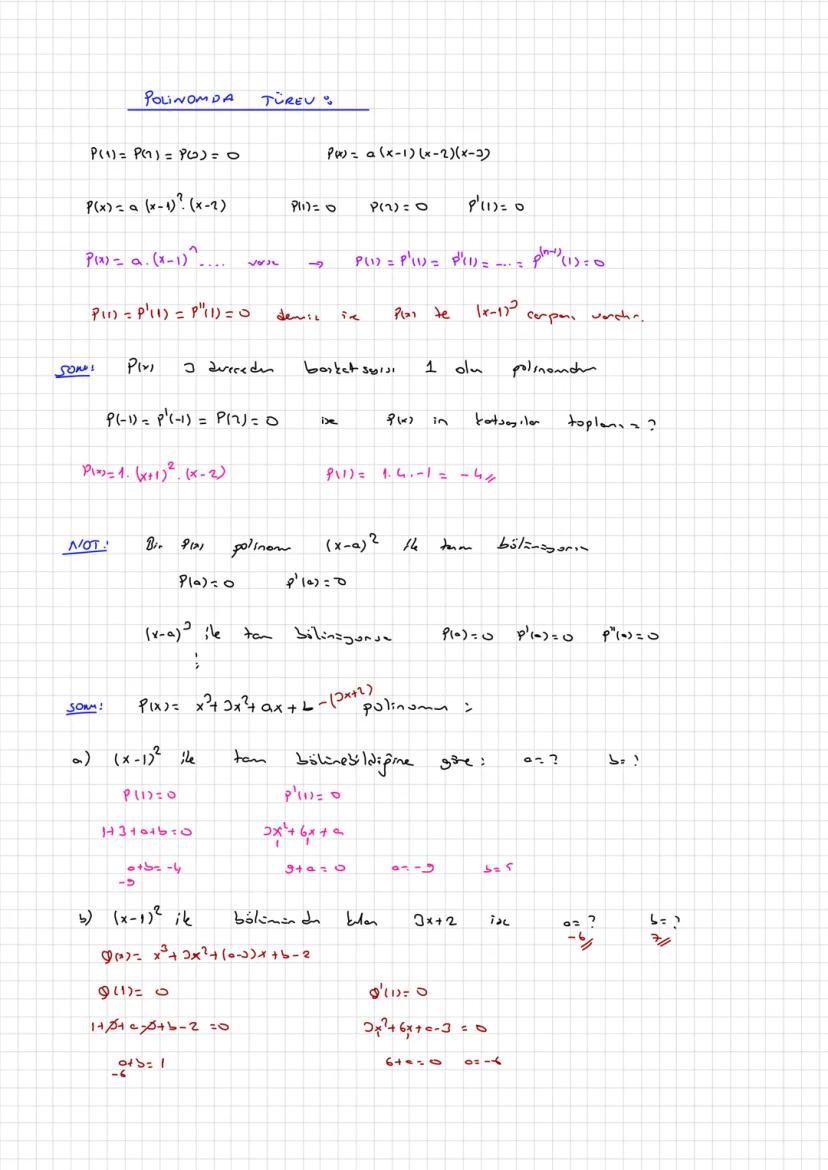 POLİNOMDA TÜREV :
P(1) = P(2) = P(3) = 0 P(x) = a(x-1)(x-2)(x-3)
P(x) = a (x-1)². (x-2) P(1) = 0 P(2) = 0 P'(1) = 0
P(x) = a. (x-1)ⁿ .... varsa → P(1) = P'(1) = P''(1) = .... = P⁽ⁿ⁻¹⁾(1) = 0
P(1) = P'(1) = P''(1) = 0 denmiş ise P(x) te (x-1)³ çarpanı vardır.
SORU: P(x) 3 dereceden başkatsayısı 1 olan polinomdur
P(-1) = P'(-1) = P(2) = 0 ise P(x) in katsayılar toplamı = ?
P(x) = 1. (x+1)². (x-2) P(1) = 1.4.-1 = -4
NOT: Bir P(x) polinom (x-a)² ile tam bölünüyorsa
P(a) = 0 P'(a) = 0
(x-a)³ ile tam bölünüyorsa P(a) = 0 P'(a) = 0 P''(a) = 0
⋮
SORU: P(x) = x³ + 3x² + ax + b -(3x+2) polinomu :
a) (x-1)² ile tam bölünebildiğine göre : a = ? b = ?
P(1) = 0 P'(1) = 0
1+3+a+b = 0 3x² + 6x + a
1 1
a+b = -4 9+a = 0 a = -9 b = 5
-9
b) (x-1)² ile bölümünden kalan 3x+2 ise a = ? b = ?
-6 7
Q(x) = x³ + 3x² + (a-3)x + b-2
Q(1) = 0 Q'(1) = 0
1+3+a-3+b-2 = 0 3x² + 6x + a-3 = 0
1 1
a+b = 1 6+a = 0 a = -6
-6